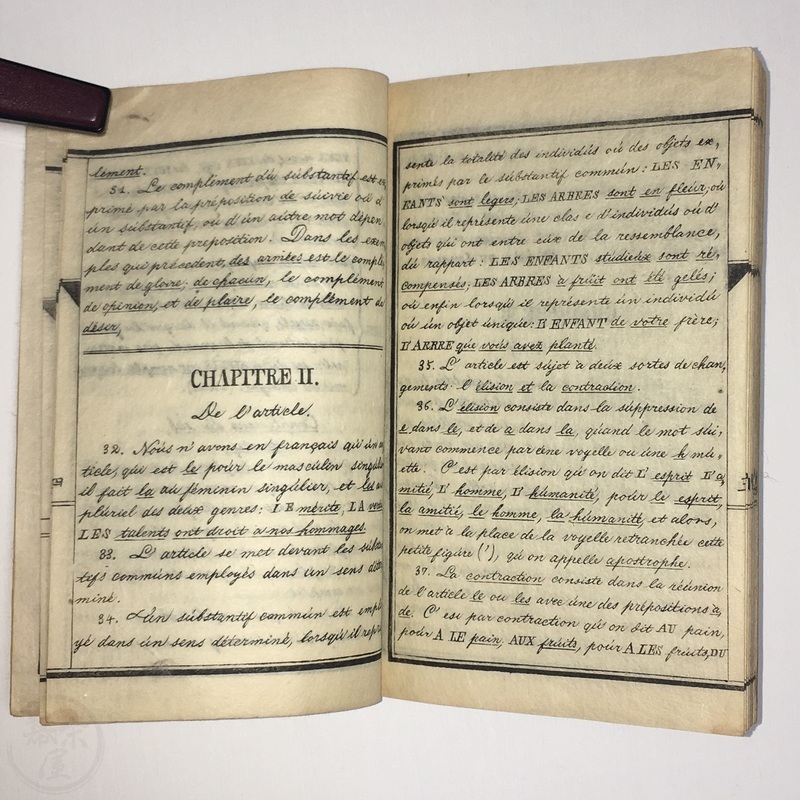 lement.
31. Le complément dú súbstantif est ex,
primé par la préposition de súivie oú d'
ún súbstantif, oú d'ún aútre mot dépen,
dant de cette preposition. Dans les exem
ples qui précedent, des armées est le complé,
ment de gloire; de chacun, le complément
de opinion, et de plaire, le complément de
désir,
CHAPITRE II.
De l'article.
32. Noús n'avons en français qú'ún ar
ticle, qui est le poúr le masculin singúlier
il fait la aú féminin singúlier, et les aú
pluriel des deúx genres: LE mérite, LA
LES talents ont droit a nos hommages.
33. L'article se met devant les súbstan
tifs communs employés dans ún sens déter
miné.
34. Ún súbstantif commún est emplo
yé dans ún sens déterminé, lorsqú'il repré
sente la totalité des individús oú des objets ex,
primés par le súbstantif commún: LES EN,
FANTS sont légers; LES ARBRES sont en fleúr; oú
lorsqú'il représente úne clas e d'individús oú d'
objets qui ont entre eúx de la ressemblance,
dú rappart: LES ENFANTS studieúx sont ré,
compensés; LES ARBRES à frúit ont été gelés;
oú enfin lorsqú'il représente ún individú
oú ún objet únique: L'ENFANT de votre frère;
L'ARRRE que voús avez planté.
35. L'article est sújet à deúx sortes de chan,
gements l'élision et la contraction.
36. L'élision consiste dans la súppression de
e dans le, et de a dans la, quand le mot súi,
vant commence par úne voyelle ou úne h mú,
ette. C'est par élision qú'on dit L' esprit L'a,
mitié, L' homme, L' húmanité, pour le esprit,
la amitié, le homme, la húmanité, et alors,
on met à la place de la voyelle retranchée cette
petite figúre ('), qú'on appelle apostrophe.
37. La contraction consiste dans la réúnion
de l'article le oú les avec úne des prépositions à,
de. C'est par contraction qú'on dit AU pain,
poúr A LE pain, AUX frúits, poúr A LES frúits, DU